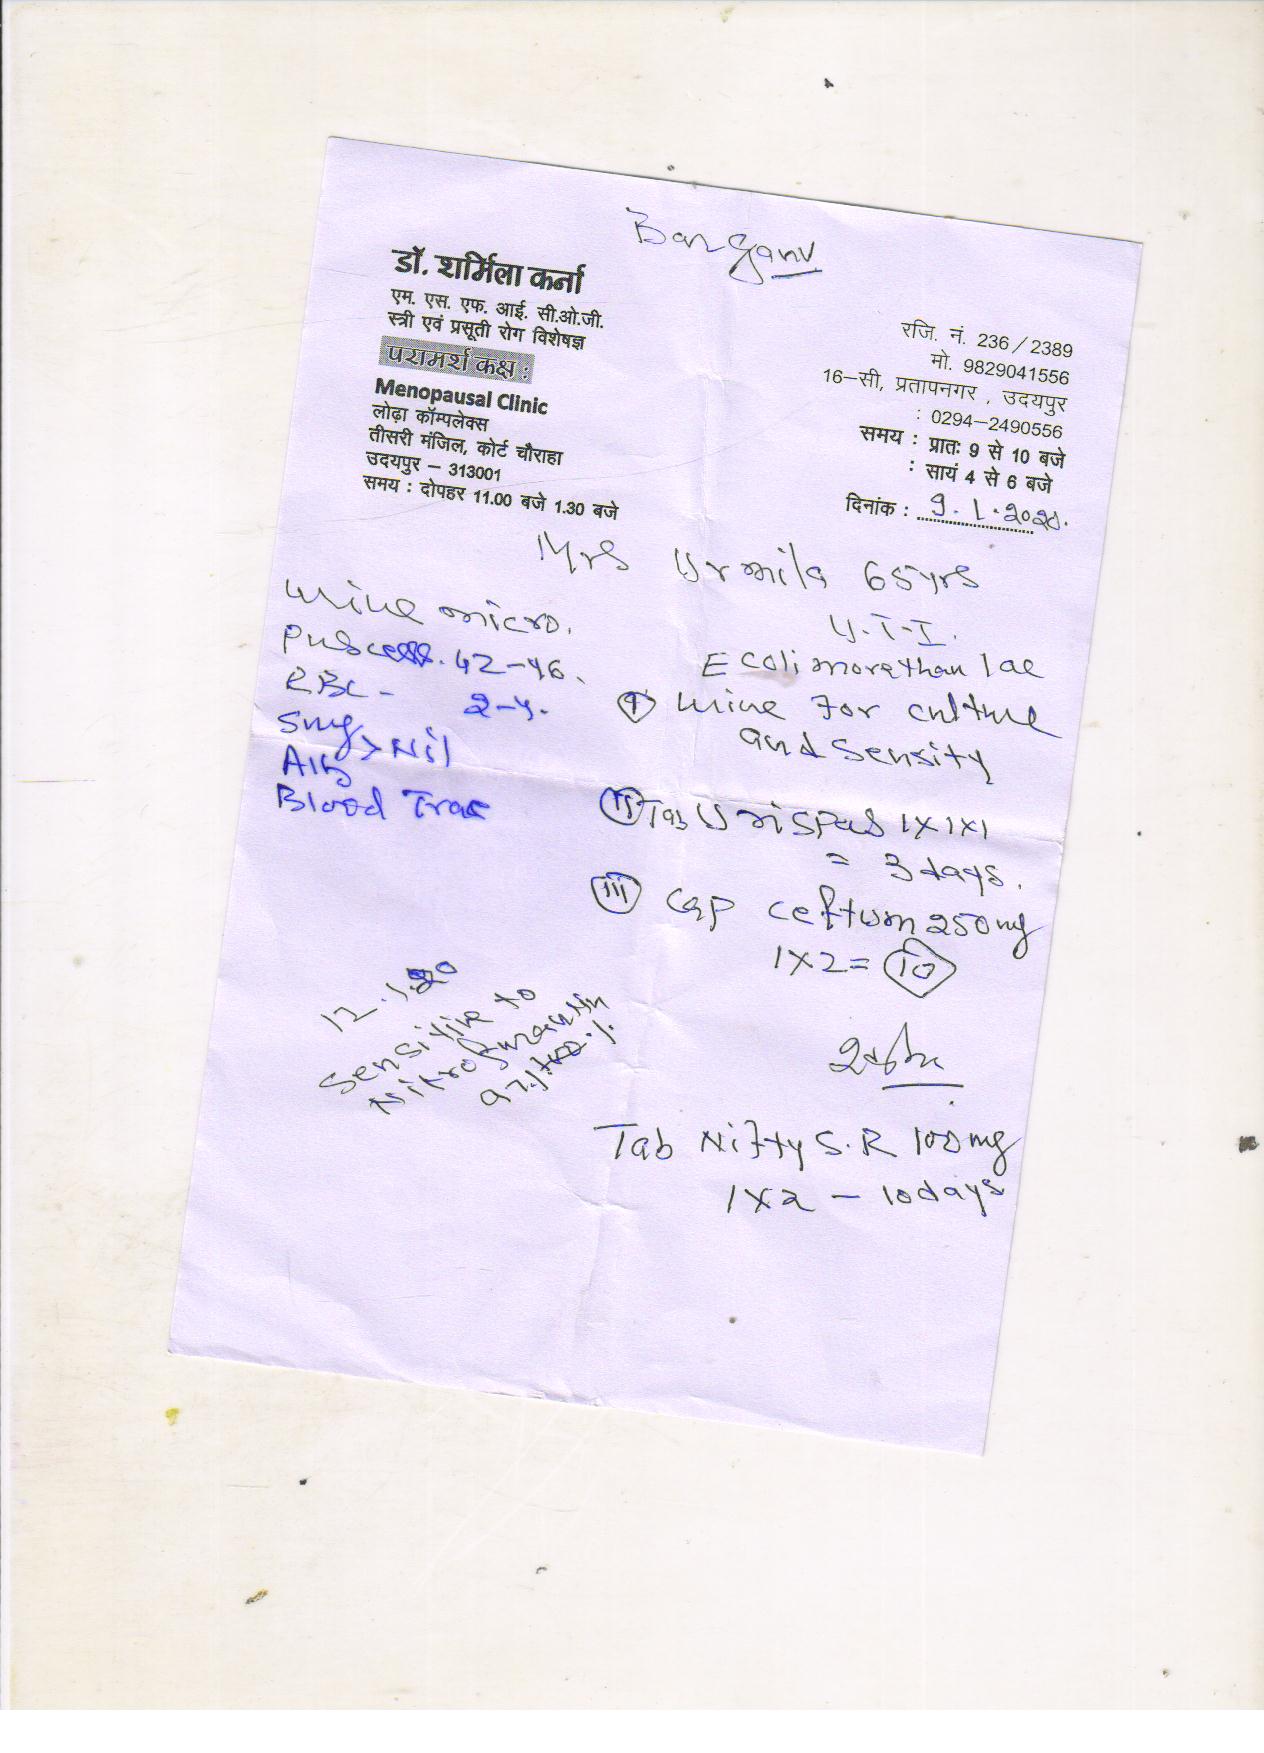 Barganv
डॉ. शर्मिला कर्ना
एम. एस. एफ. आई. सी.ओ.जी.
स्त्री एवं प्रसूती रोग विशेषज्ञ
परामर्श कक्ष :
Menopausal Clinic
लोढ़ा कॉम्पलेक्स
तीसरी मंजिल, कोर्ट चौराहा
उदयपुर – 313001
समय : दोपहर 11.00 बजे 1.30 बजे
रजि. नं. 236 / 2389
मो. 9829041556
16–सी, प्रतापनगर , उदयपुर
: 0294–2490556
समय : प्रातः 9 से 10 बजे
: सायं 4 से 6 बजे
दिनांक : 9.1.2020.
Mrs Urmila 65yrs
Urine micro.
Puscell. 42-46.
RBC - 2-4.
Sug > Nil
Alb
Blood Trac
U.T.I.
E coli more than 1 ac
(I) Urine for culture
and sensity
(II) Tab Urispas 1x1x1
= 3 days.
(III) Cap ceftum 250mg
1x2 = 10
12.1.20
Sensitive to
Nitrofurantin
Tab Nifty S.R 100mg
1x2 – 10days